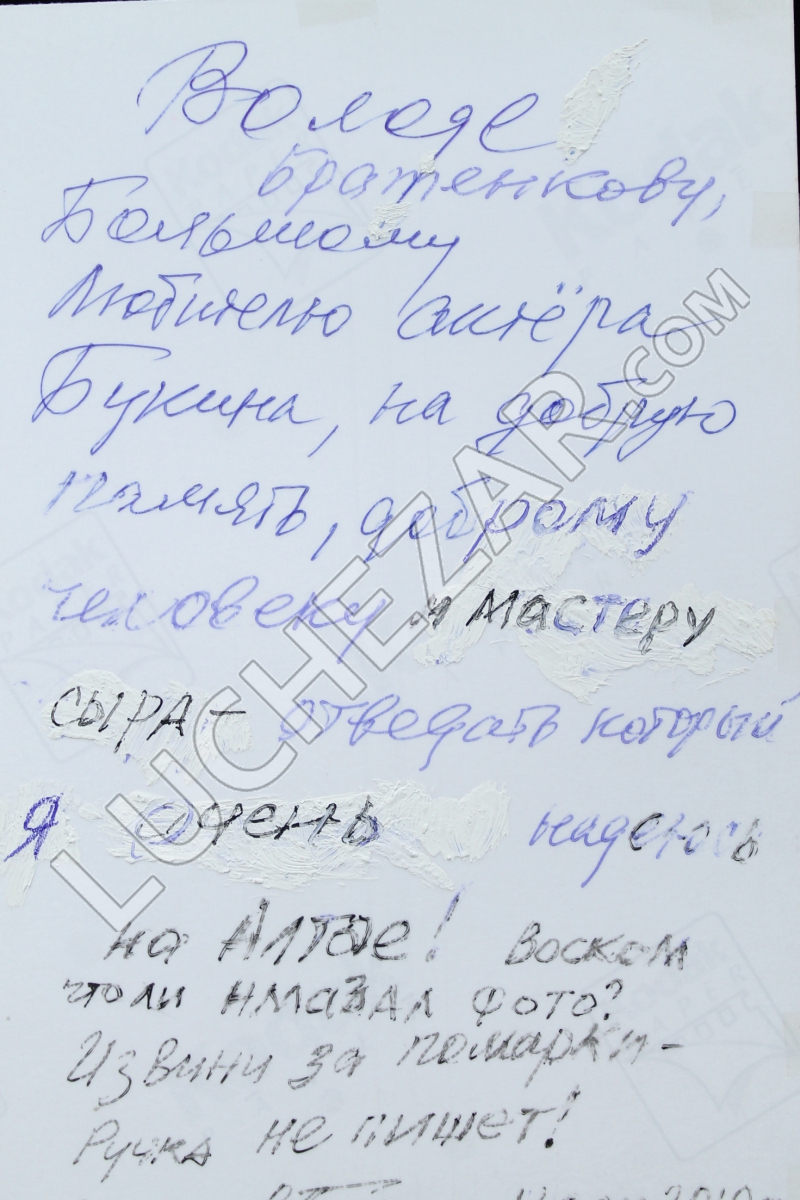 Володе
Братенкову,
Большому
Любителю актёра
Букина, на добрую
память, доброму
человеку и мастеру
сыра – отведать который
я очень надеюсь
на Алтае! Воском
что ли нмазал фото?
Извини за помарки –
Ручка не пишет!
LUCHEZAR.COM